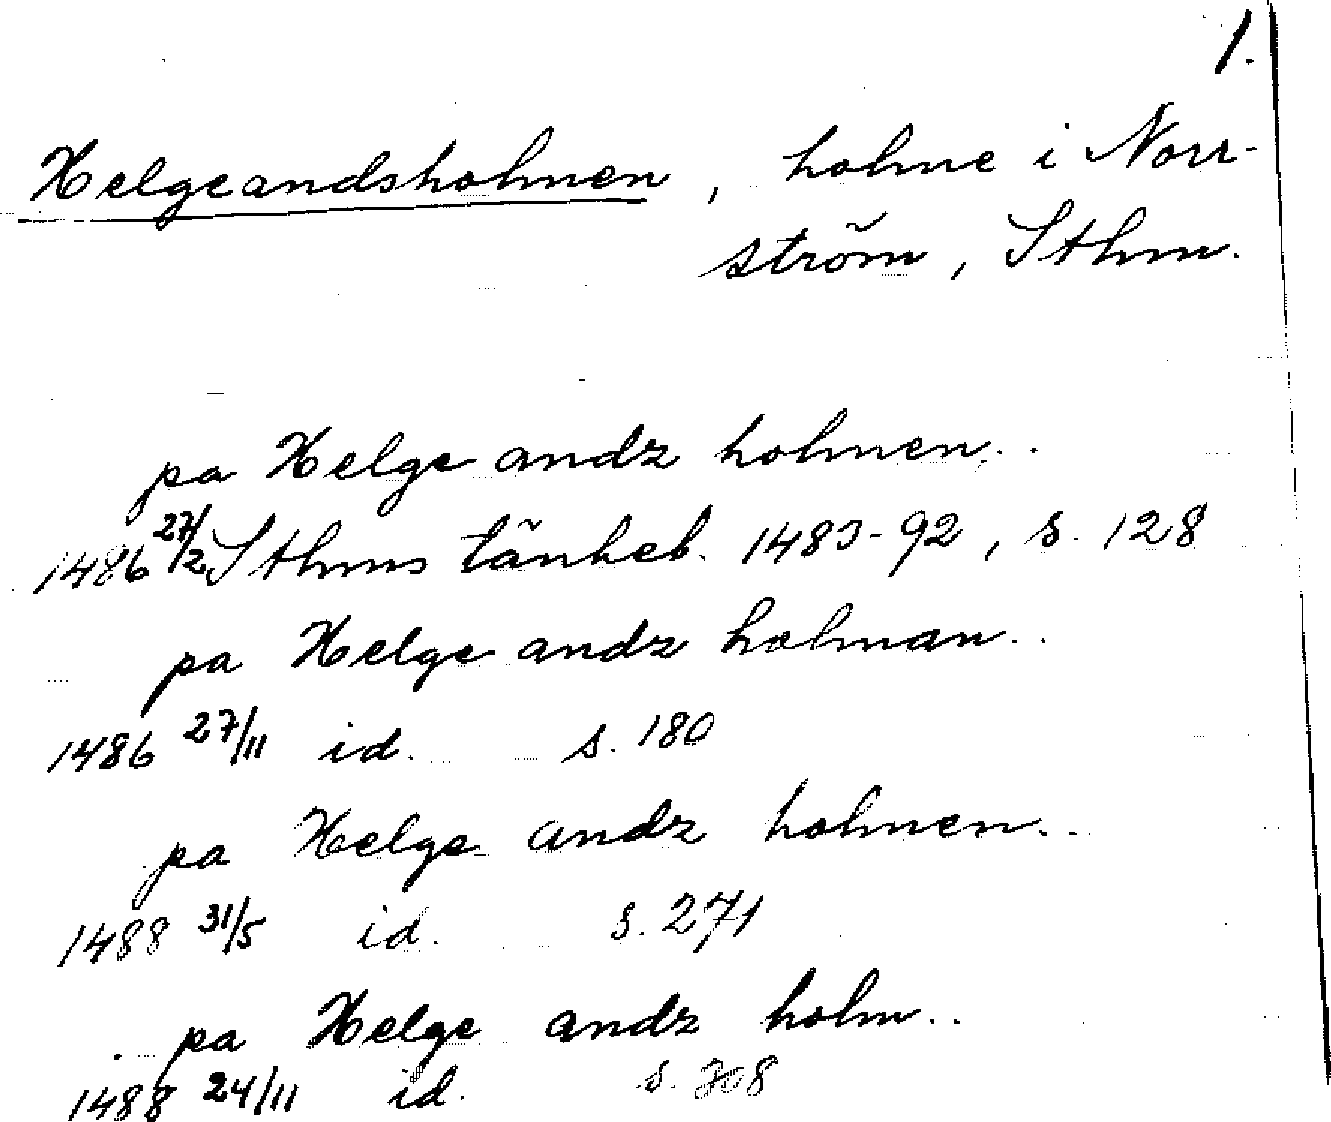 1.
Helgeandsholmen, holme i Norr-
ström, Sthm.
pa Helge andz holmen..
1486 27/2 Sthms tänkeb. 1483-92, s. 128
pa Helge andz holman..
1486 27/11 id. s. 180
pa Helge andz holmen..
1488 31/5 id. s. 271
pa Helge andz holm..
1488 24/11 id. s.